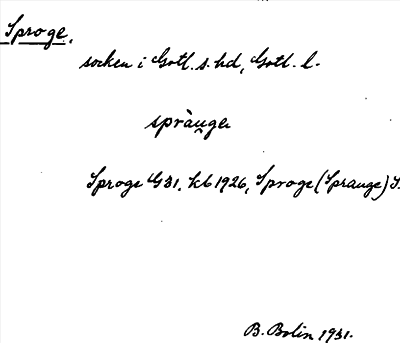 Sproge.
socken i Gotl. s. hd, Gotl. l.
spràu̯ge
Sproge G31. kb 1926, Sproge (Sprauge) S.
B. Bolin 1931.